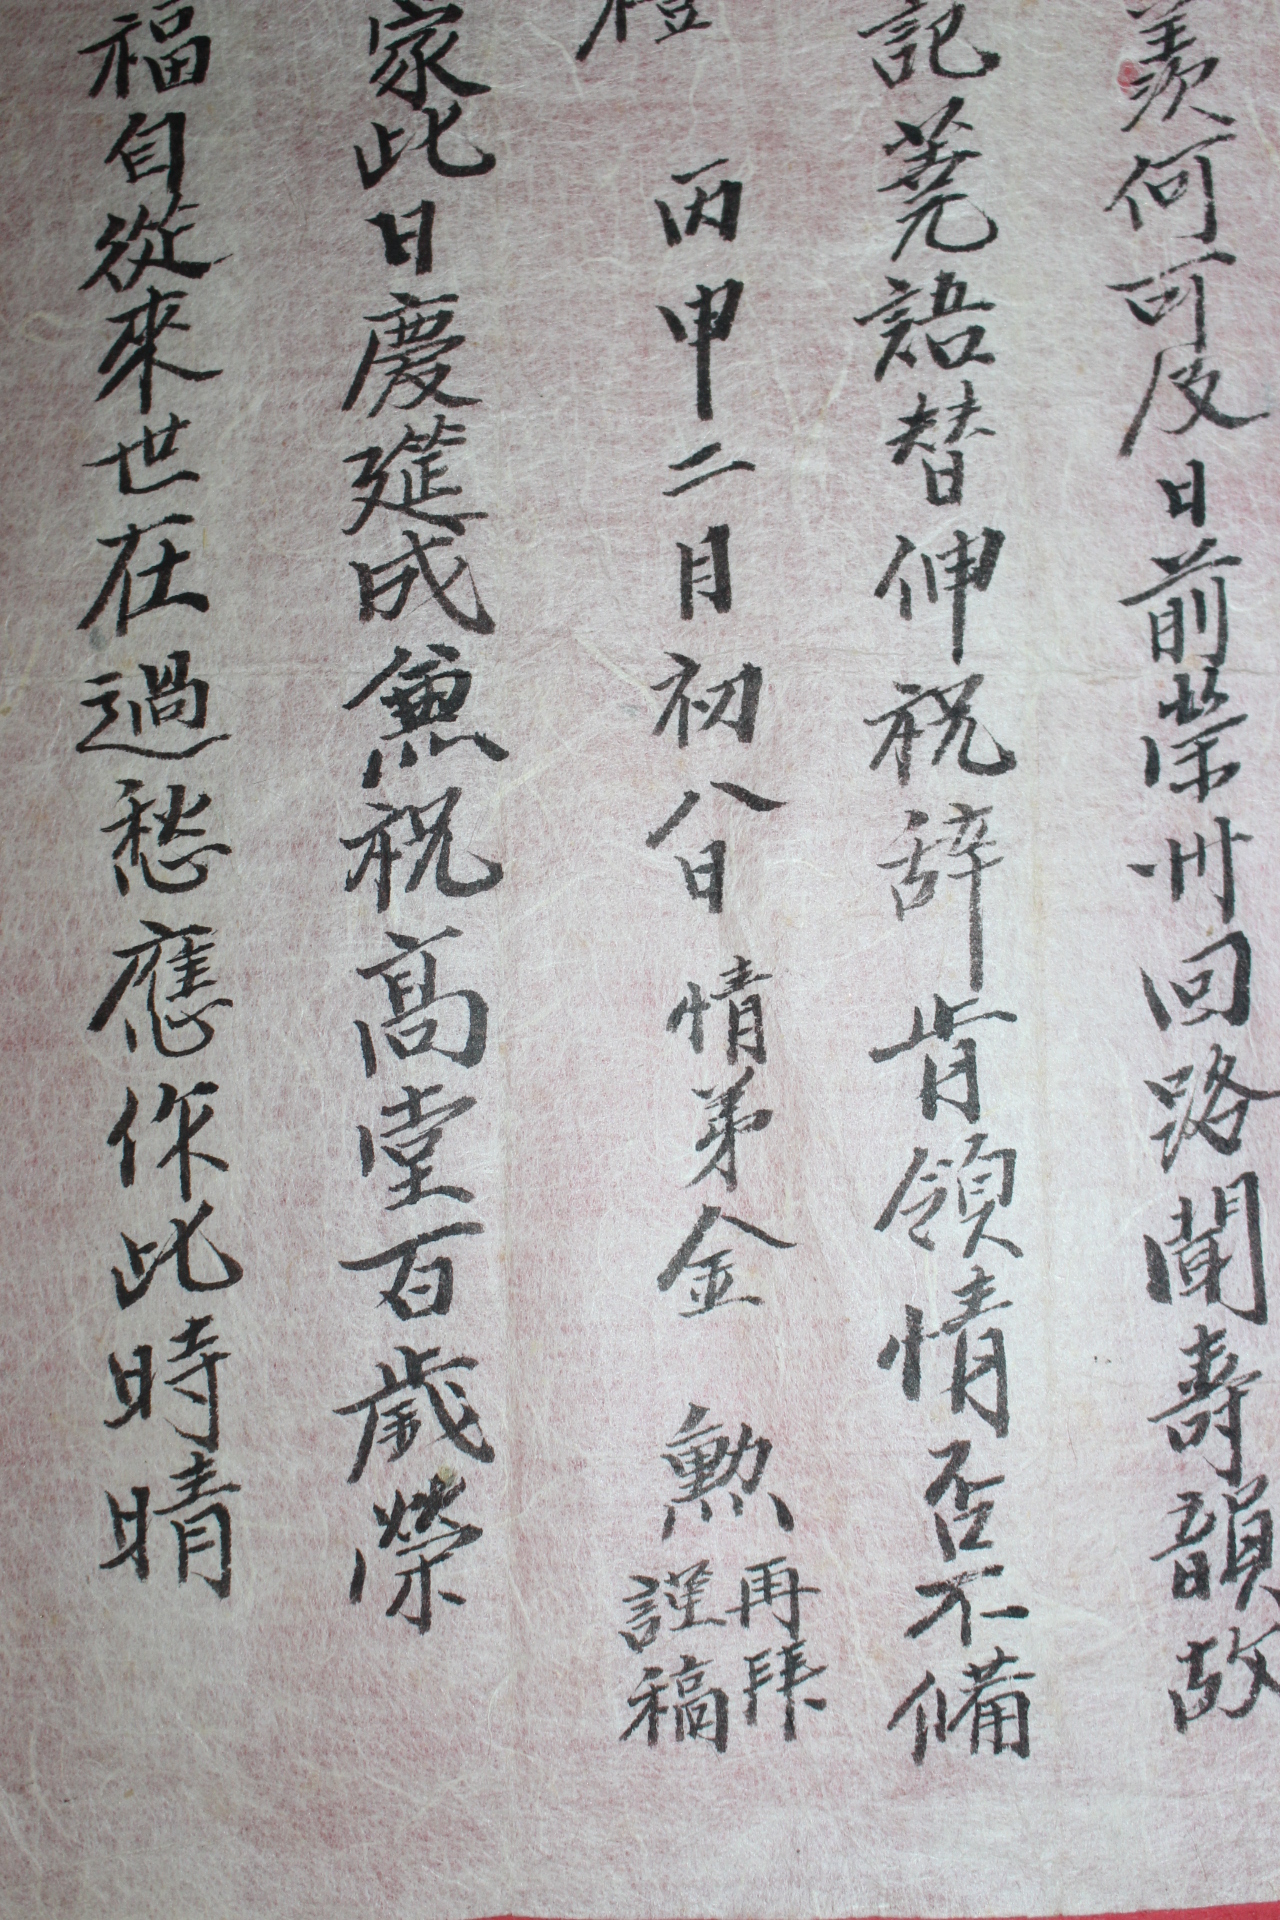 羨何可及日前荣州回路聞壽韻故
記蕘語替伸祝辞肯領情否不備
禮
丙申二月初八日 情弟金 勲 再拜
謹稿
家此日慶莚成兼祝髙堂百歲榮
福自從來世在過愁應作此時晴